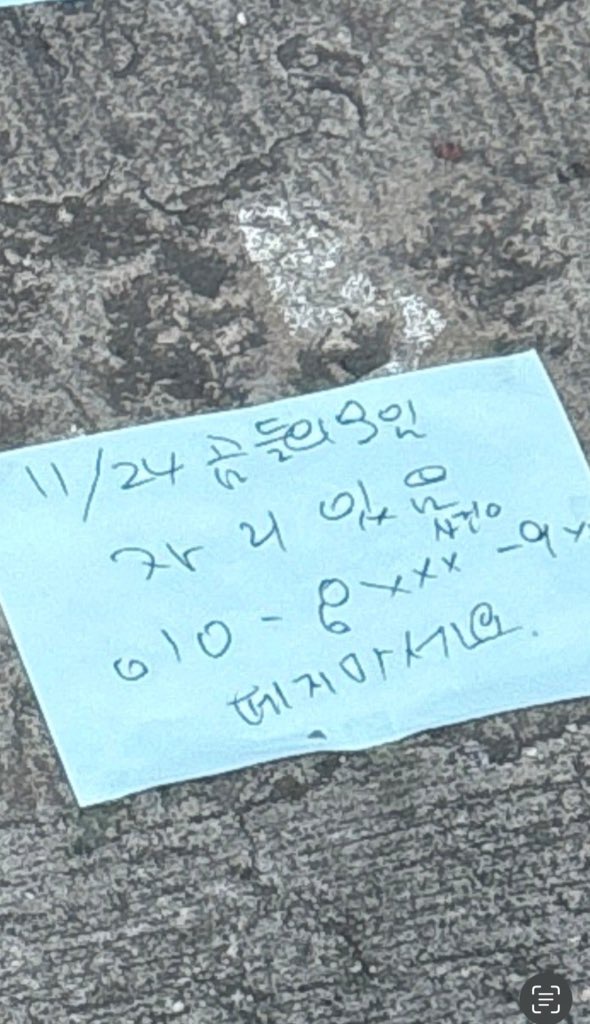 11/24 곰들의우일
자리 있음
사정0
010-8xxx-9x
떼지마세요.